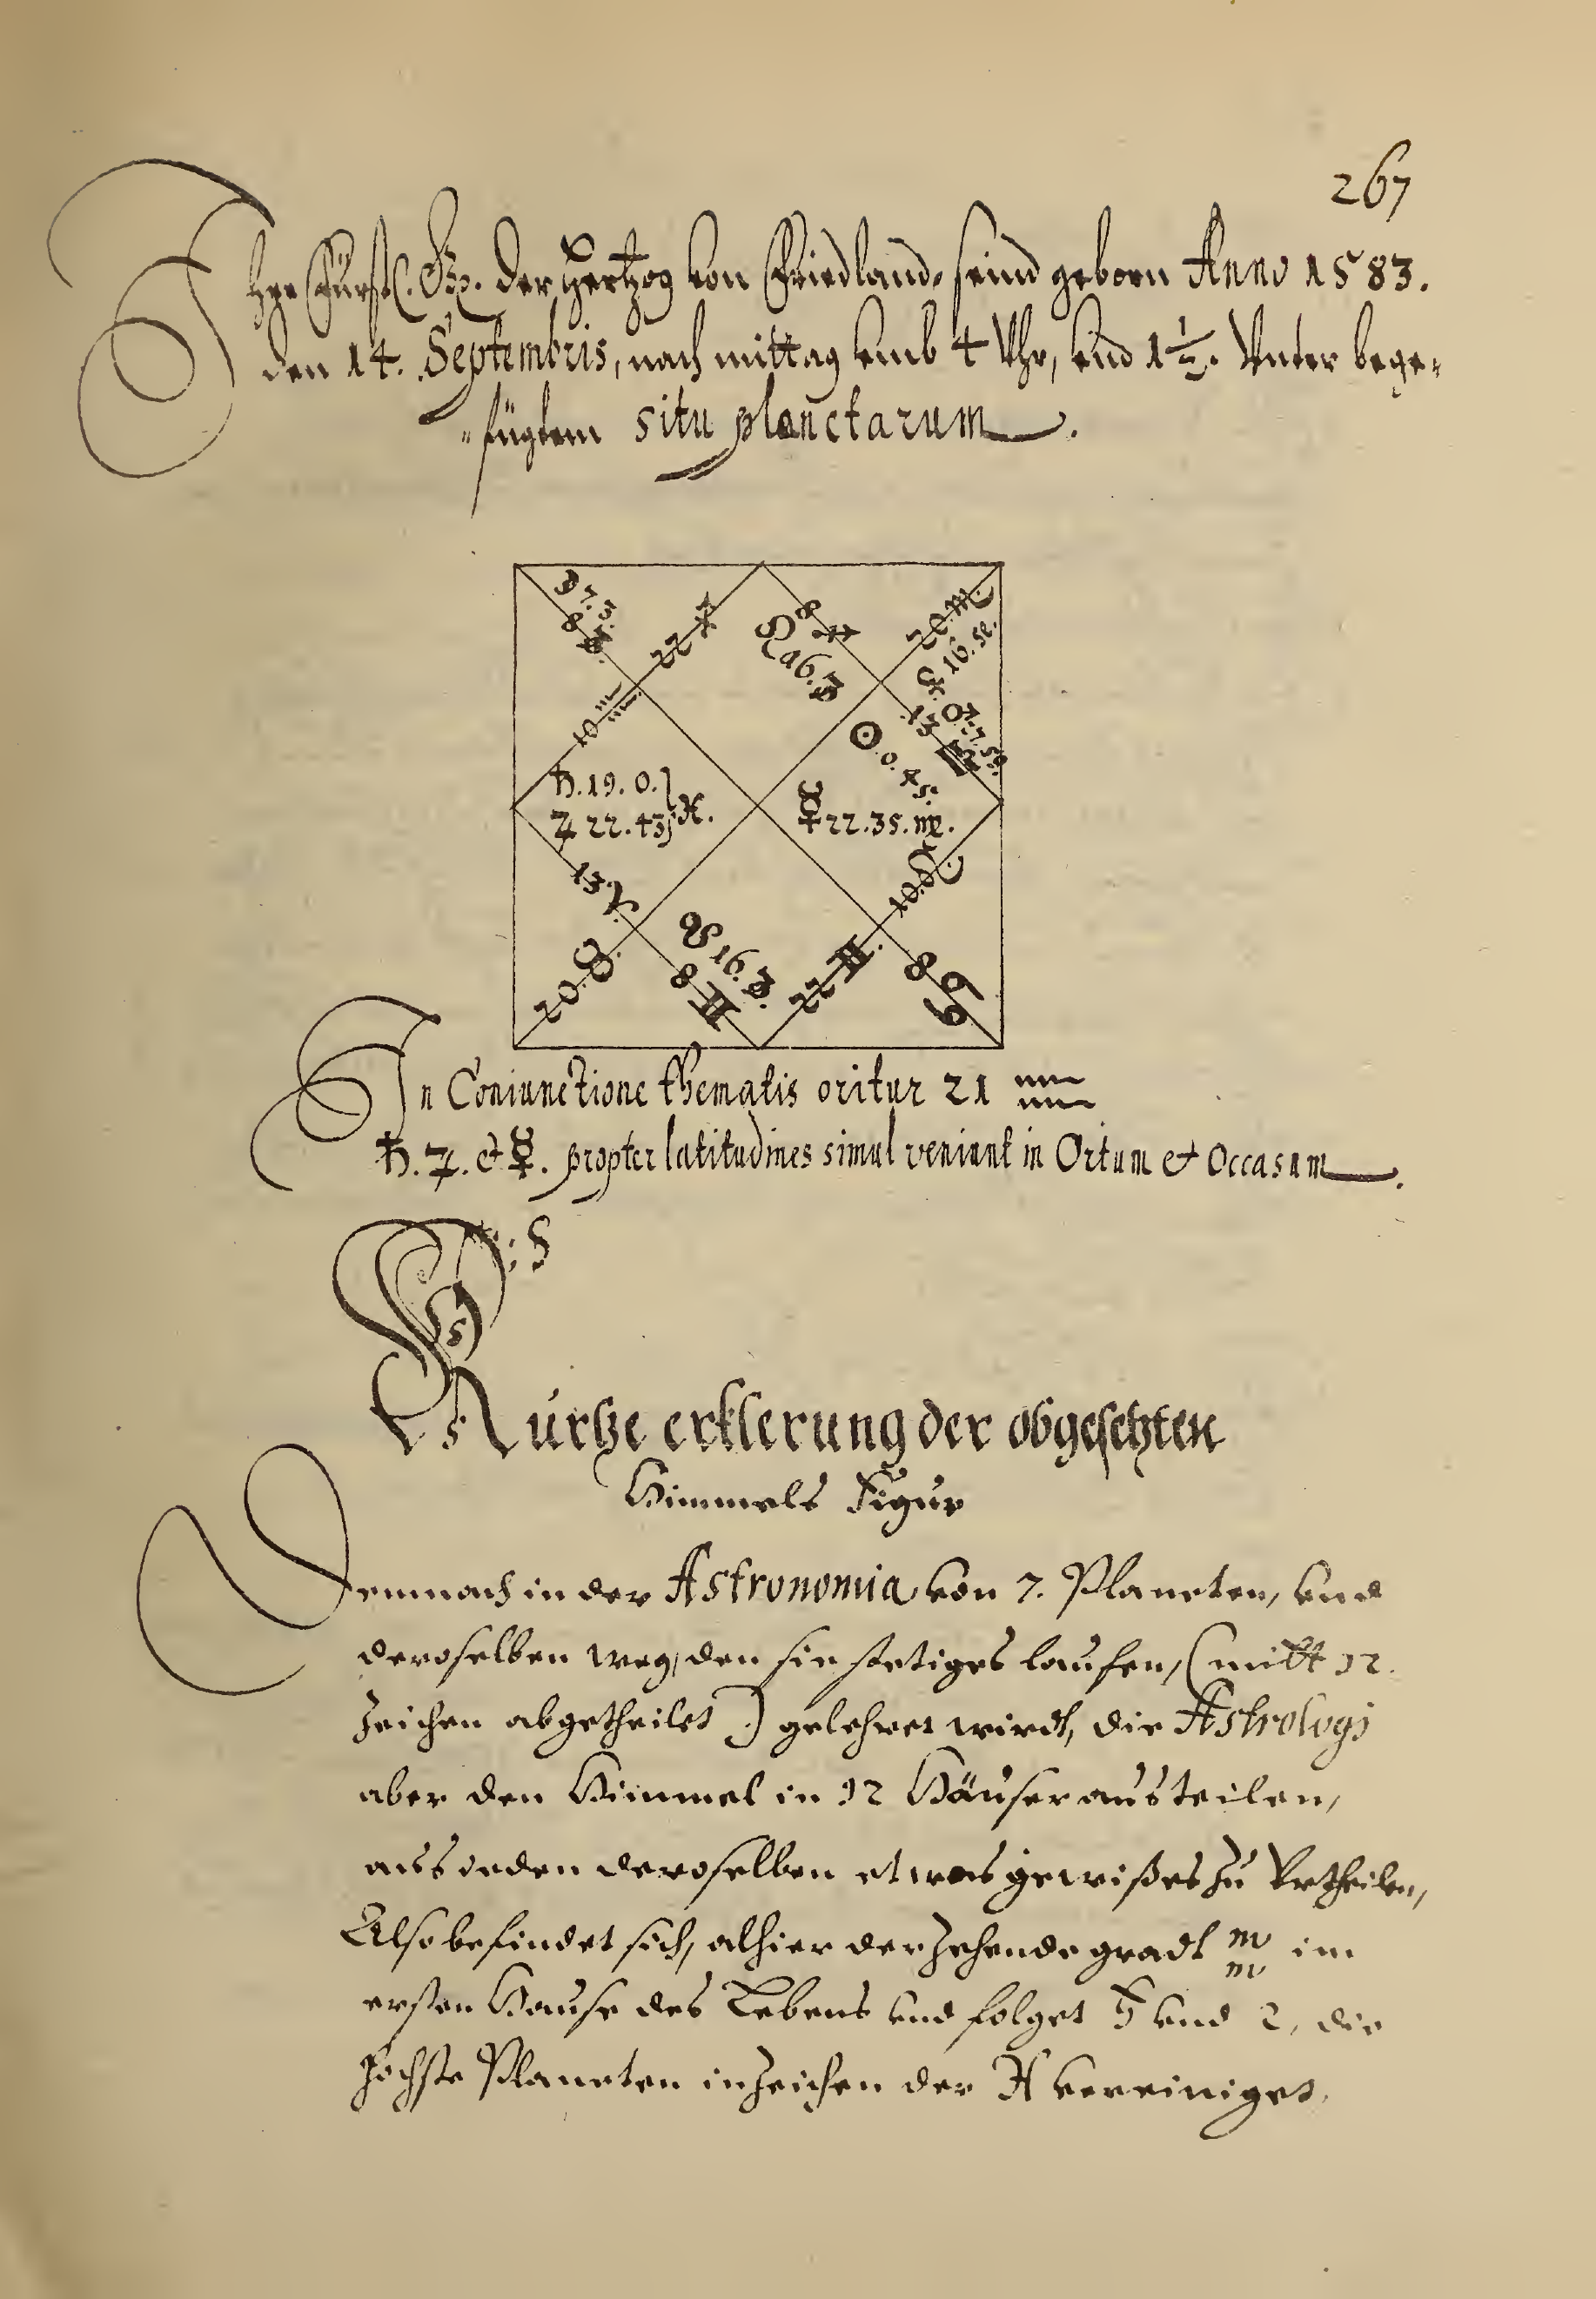 267
Ihre Fürstl. Gn. der Hertzog von Friedland, seind geborn Anno 1583.
den 14. Septembris, nach mittag umb 4 Uhr, und 1½. Unter bege-
fügtem situ planetarum.
☽ 7. 3.
8 ♑.
22 ♐
☊ 16. ♐
8 ♐
20 ♏
♀ 16. se.
10 ♒
☉ 0. 4 se.
♂ 7. 7. se.
13 ♎
♄. 19. 0. } ♓.
♃ 22. 43
☿ 22. 35. ♍.
13 ♈.
10 ♌
20. ♉.
☋ 16. ♊.
8 ♊
22 ♊.
8 ♋
In Coniunctione thematis oritur 21 ♒
♄. ♃. et ☿. propter latitudines simul veniunt in Ortum et Occasum.
Kurtze erklerung der obgesetzten
Himmels Figur
Demnach in der Astronomia von 7. Planeten, und
deroselben weg, den sie stetiges laufen, (mitt 12.
Zeichen abgetheilet) gelehret wirdt, die Astrologi
aber den Himmel in 12 Häuser austeilen,
aus ieden deroselben etwas gewißes zu Urtheilen,
Also befindet sich, alhier der zehende gradt ♒ im
ersten Hause des Lebens und folget ♄ und ♃, die
höchste Planeten in Zeichen der ♓ vereiniget,